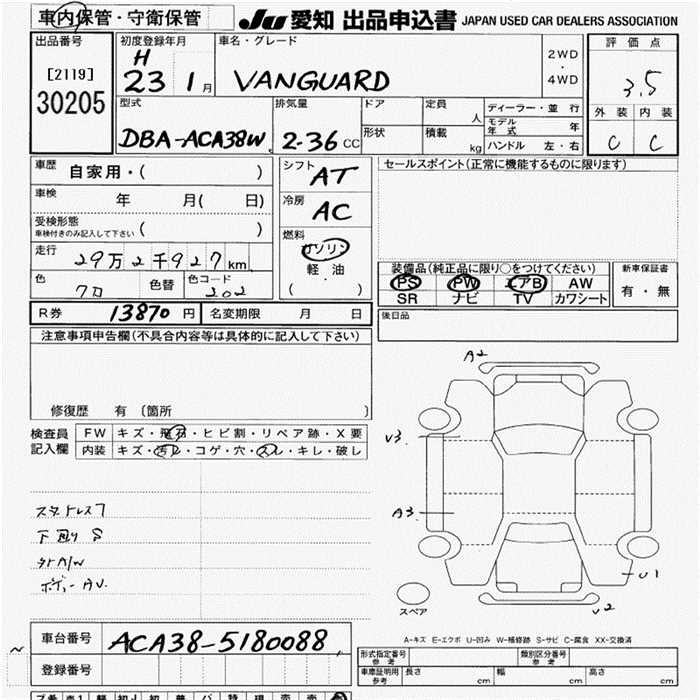 車内保管・守衛保管
JU 愛知 出品申込書 JAPAN USED CAR DEALERS ASSOCIATION
出品番号
[2119]
30205
初度登録年月
H
23 1月
車名・グレード
VANGUARD
2WD
・
4WD
評価点
3.5
外装 内装
C C
型式
DBA-ACA38W
排気量
2-36 CC
ドア
形状
定員 人
積載 kg
ディーラー・並行
モデル年式 年
ハンドル 左・右
車歴 自家用・( )
車検 年 月( 日)
受検形態
車検付きのみ記入して下さい ( )
走行 29万2千927km
色 色替 色コード
202
シフト AT
冷房 AC
燃料
ガソリン
軽油
( )
セールスポイント(正常に機能するものに限ります)
装備品(純正品に限り○をつけてください)
PS PW エアB AW
SR ナビ TV カワシート
新車保証書
有・無
R券 13870円 名変期限 月 日
後日品
注意事項申告欄(不具合内容等は具体的に記入して下さい)
修復歴 有 〔箇所 〕
検査員記入欄
FW キズ・飛石・ヒビ割・リペア跡・X要
内装 キズ・汚れ・コゲ・穴・スレ・キレ・破し
スタットレス7
下廻りS
外A/W
ボデーAU.
A2
V3.
A3.
U1
V2
スペア
A-キズ E-エクボ U-凹み W-補修跡 S-サビ C-腐食 XX-交換済
車台番号 ACA38-5180088
登録番号
形式指定番号
参考
類別区分番号
参考
車庫証明用
参考
長さ cm 幅 cm 高さ cm